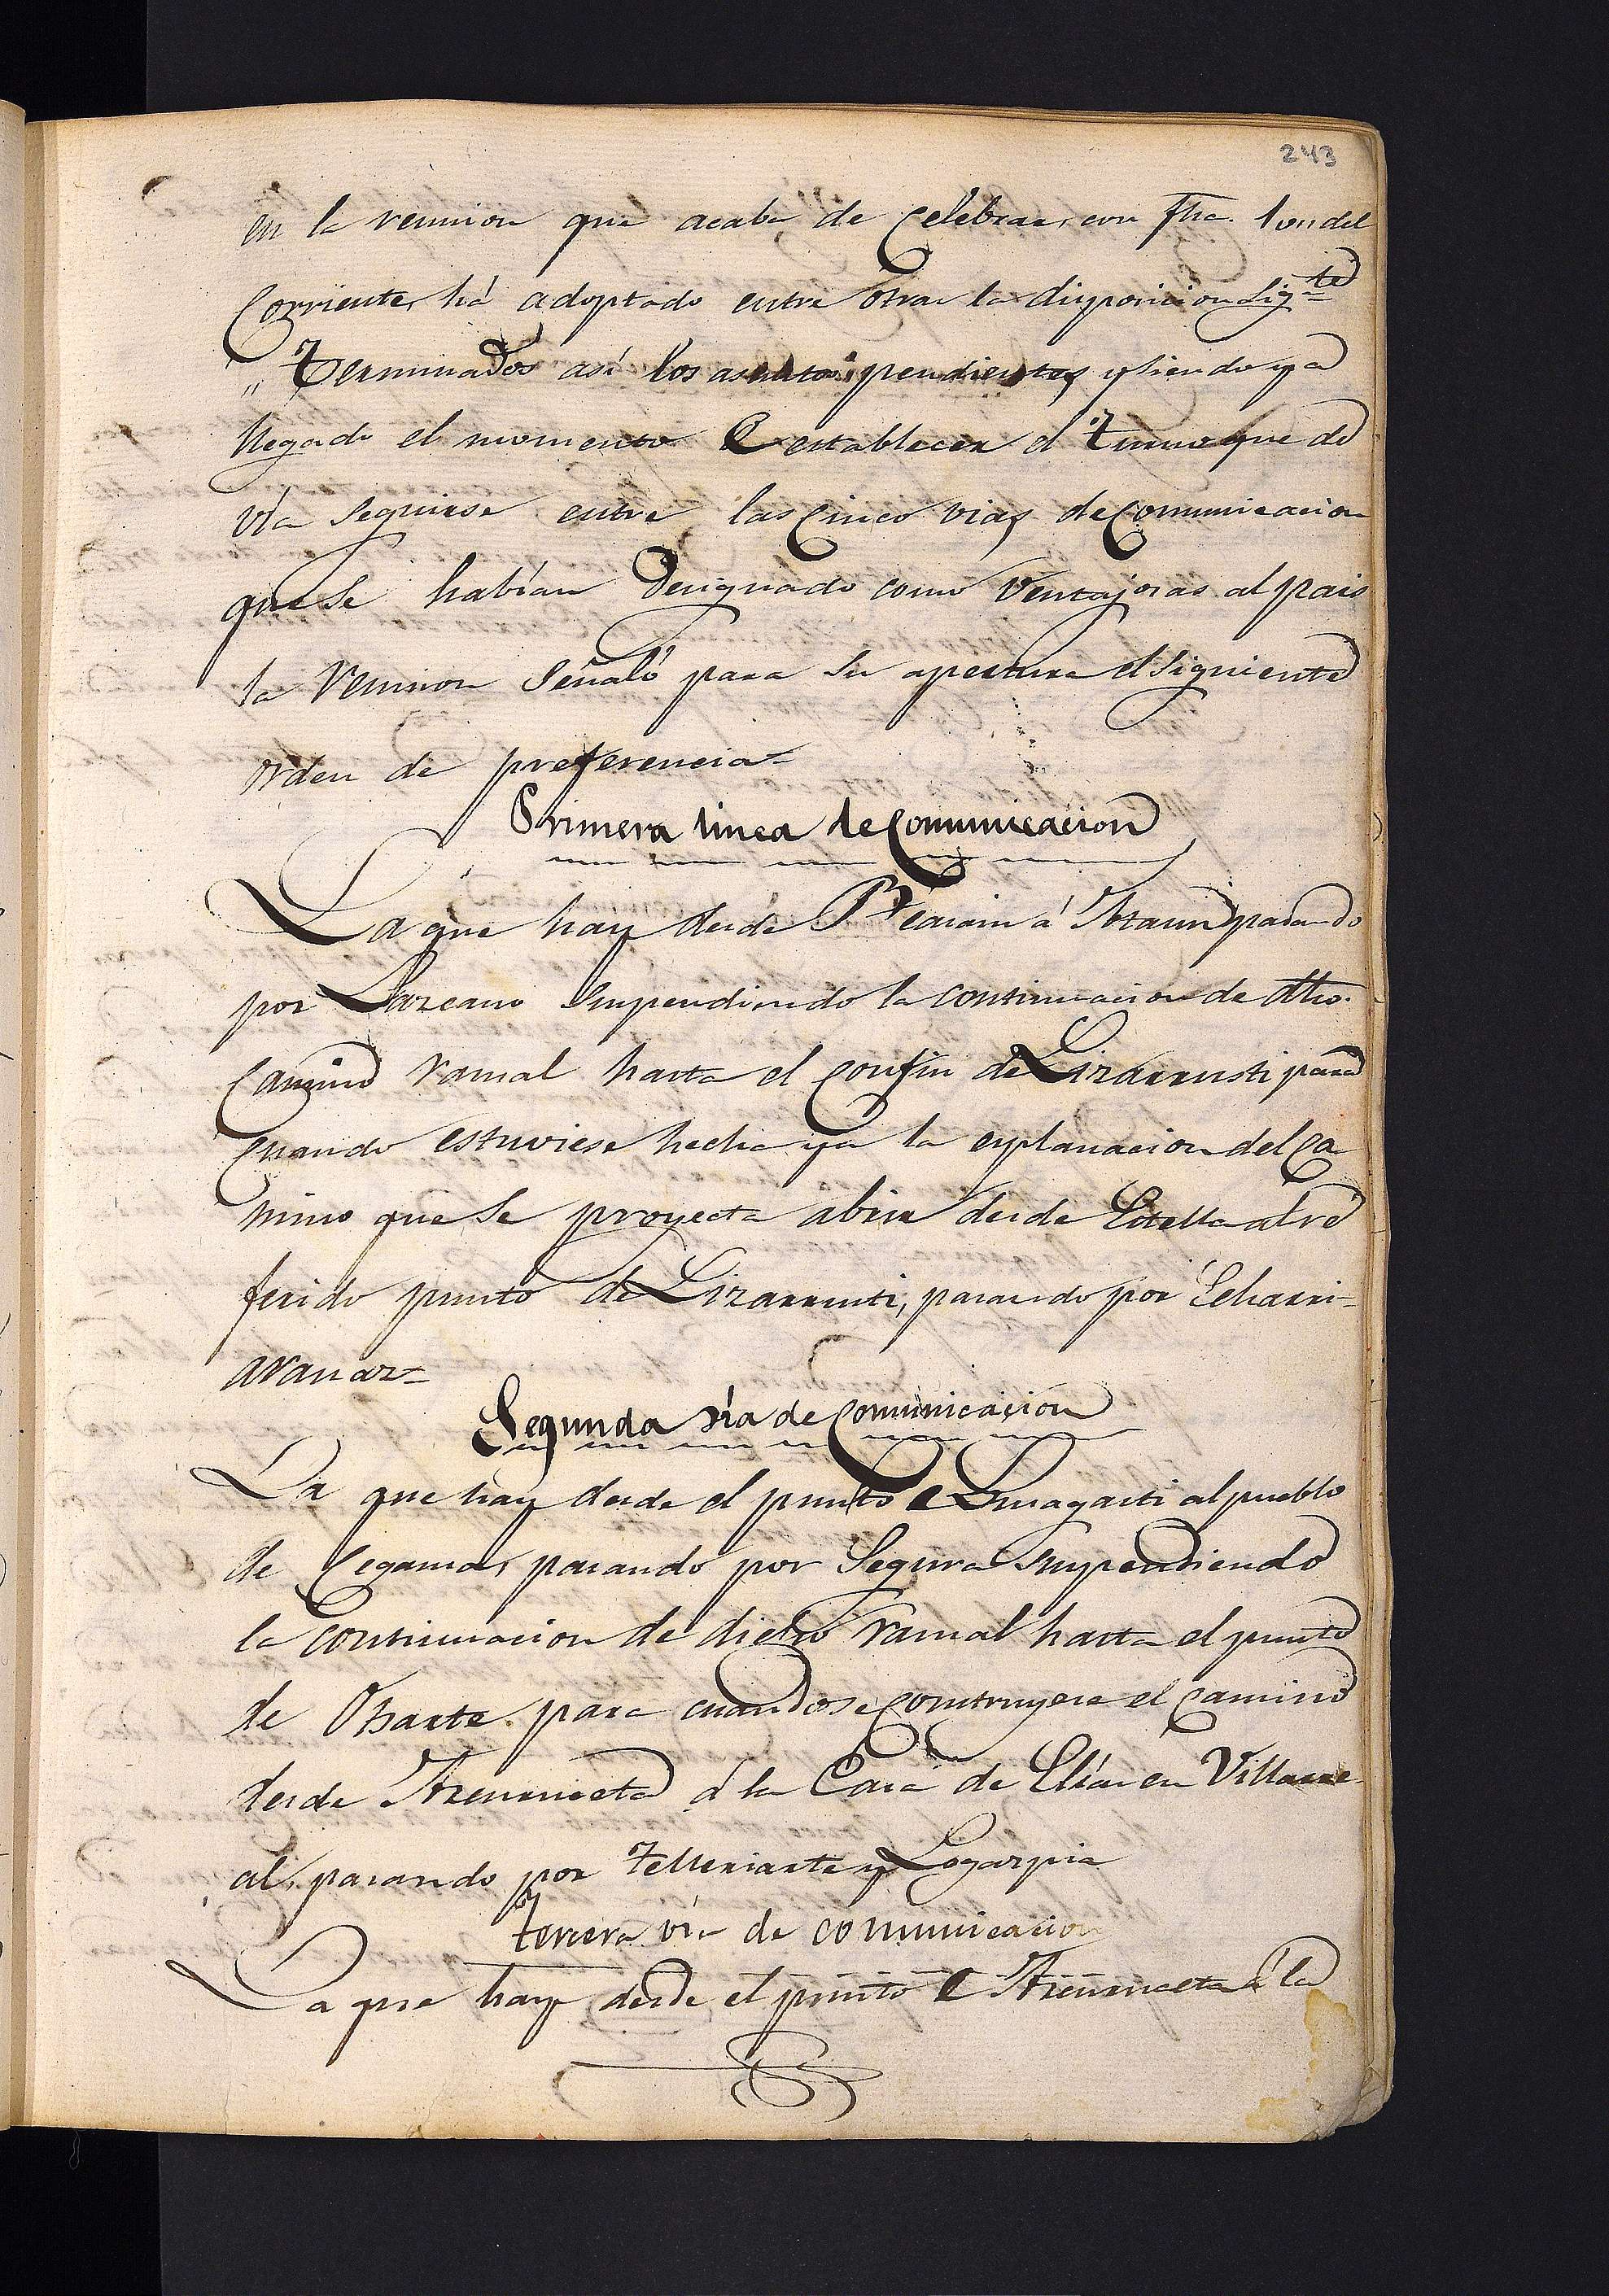 243
en la reunion que acaba de Celebrar, con fha. 1º del
Corriente, há adoptado entre otras la disposicion Sigte
" Terminados así los asuntos pendientes y siendo ya
llegado el momento de establecer el turno que de
vía Seguirse entre las Cinco vias de Comunicacion
que Se habían Designado como Ventajosas al pais
la reunion Señaló para Su apertura el Siguiente
orden de preferencia=
Primera linea de Comunicacion
La que hay desde Beasain á Ataun pasando
por Lazcano Suspendiendo la continuacion de dho.
Camino ramal hasta el Confin de Lizarrusti para
Cuando estuviese hecha ya la explanacion del Ca
mino que Se proyecta abrir desde Estella al re
ferido punto de Lizarrusti, pasando por Echarri-
aranaz=
Segunda vía de Comunicacion
La que hay desde el punto de Yurragarsti al pueblo
de Cegama, pasando por Segura Suspendiendo
la Continuacion de dicho ramal hasta el punto
de Otzarte para cuando se Construyera el Camino
desde á la Casa de Elías en Villarre
al, pasando por Telleriarte y Legazpia
tercera vía de comunicacion
La que hay desde el punto de á la